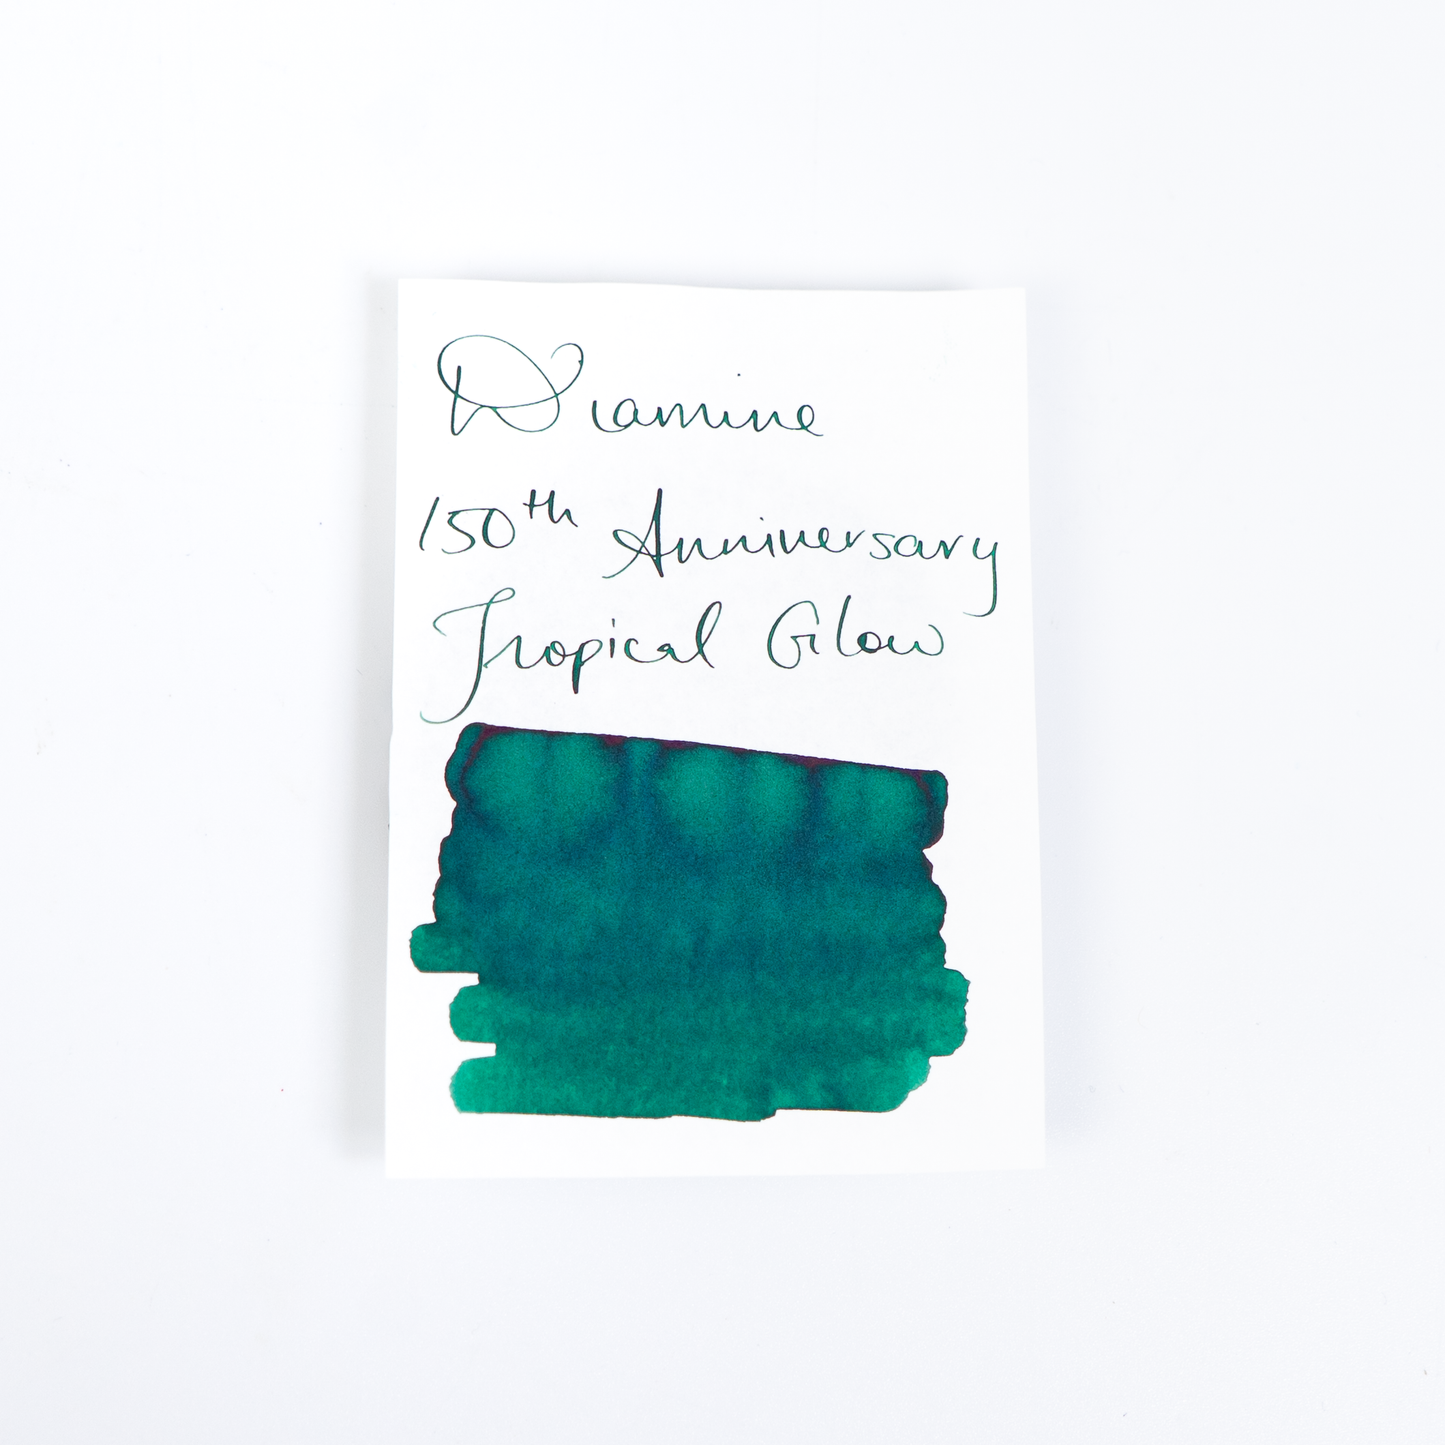 Diamine
150th Anniversary
Tropical Glow